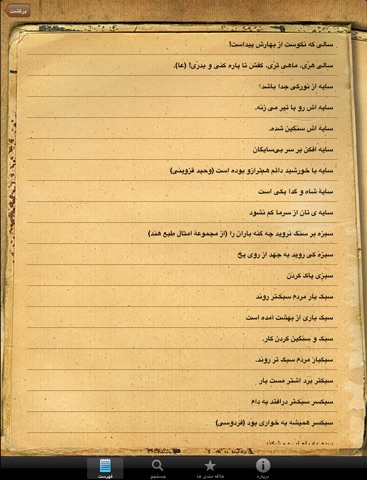 برگشت
سالی که نکوست از بهارش پیداست!
سالی هری، ماهی تری، کفش تا پاره کنی و بدری! (عا).
سایه از نورکی جدا باشد؛
سایه اش رو با تیر می زنه.
سایه اش سنگین شده.
سایه افکن بر سر بی‌سایگان
سایه با خورشید دائم همترازو بوده است (وحید قزوینی)
سایهٔ شاه و گدا یکی است
سایه ی تان از سرما کم نشود
سبزه بر سنگ نروید چه گنه باران را (از مجموعهٔ امثال طبع هند)
سبزه کی روید به جهد از روی یخ
سبزی پاک کردن
سبک بار مردم سبکتر روند
سبک باری از بهشت آمده است
سبک و سنگین کردن کار.
سبکبار مردم سبک تر روند.
سبکتر برد اشتر مست بار
سبکسر سبکتر درافتد به دام
سبکسر همیشه به خواری بود (فردوسی)
فهرست
جستجو
علاقه مندی ها
درباره